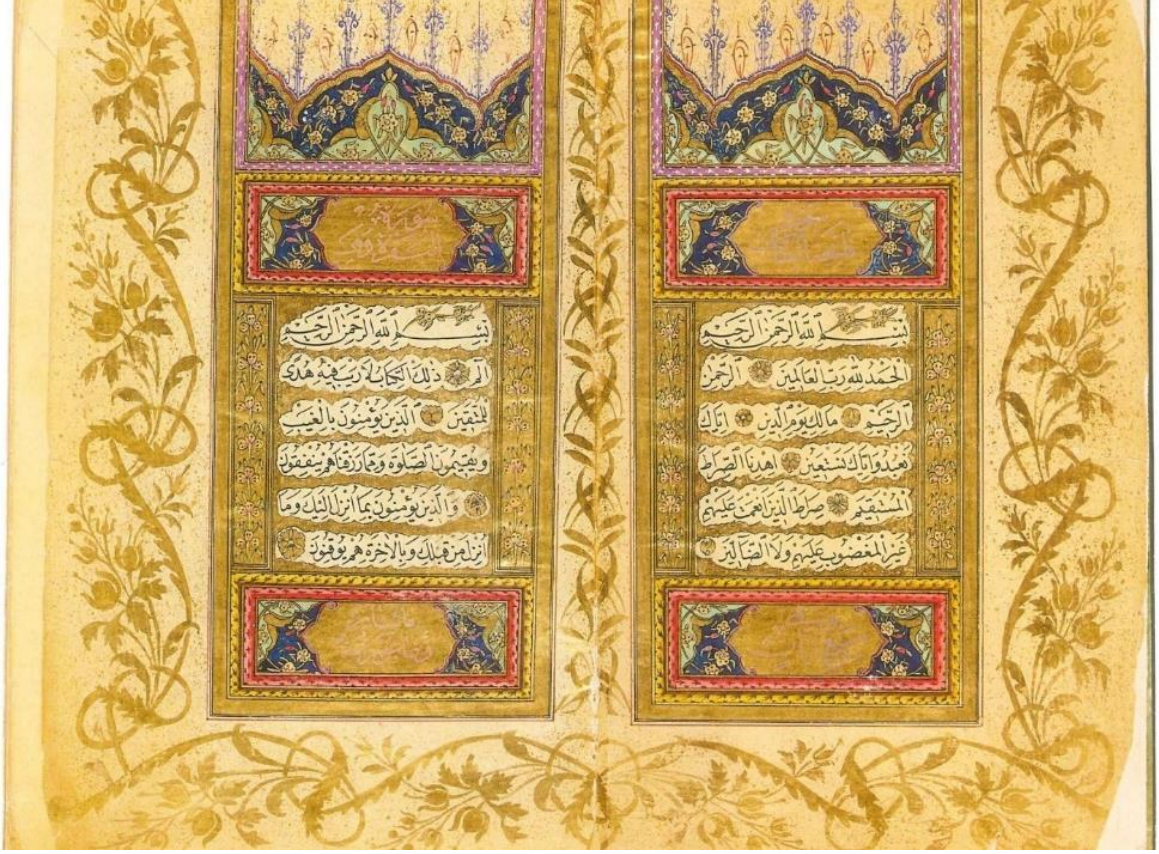 بسم الله الرحمن الرحيم
الحمد لله رب العالمين الرحمن
الرحيم مالك يوم الدين اياك
نعبد واياك نستعين اهدنا الصراط
المستقيم صراط الذين انعمت عليهم
غير المغضوب عليهم ولا الضالين
بسم الله الرحمن الرحيم
الم ذلك الكتاب لا ريب فيه هدى
للمتقين الذين يؤمنون بالغيب
ويقيمون الصلوة ومما رزقناهم ينفقون
والذين يؤمنون بما انزل اليك وما
انزل من قبلك وبالاخرة هم يوقنون